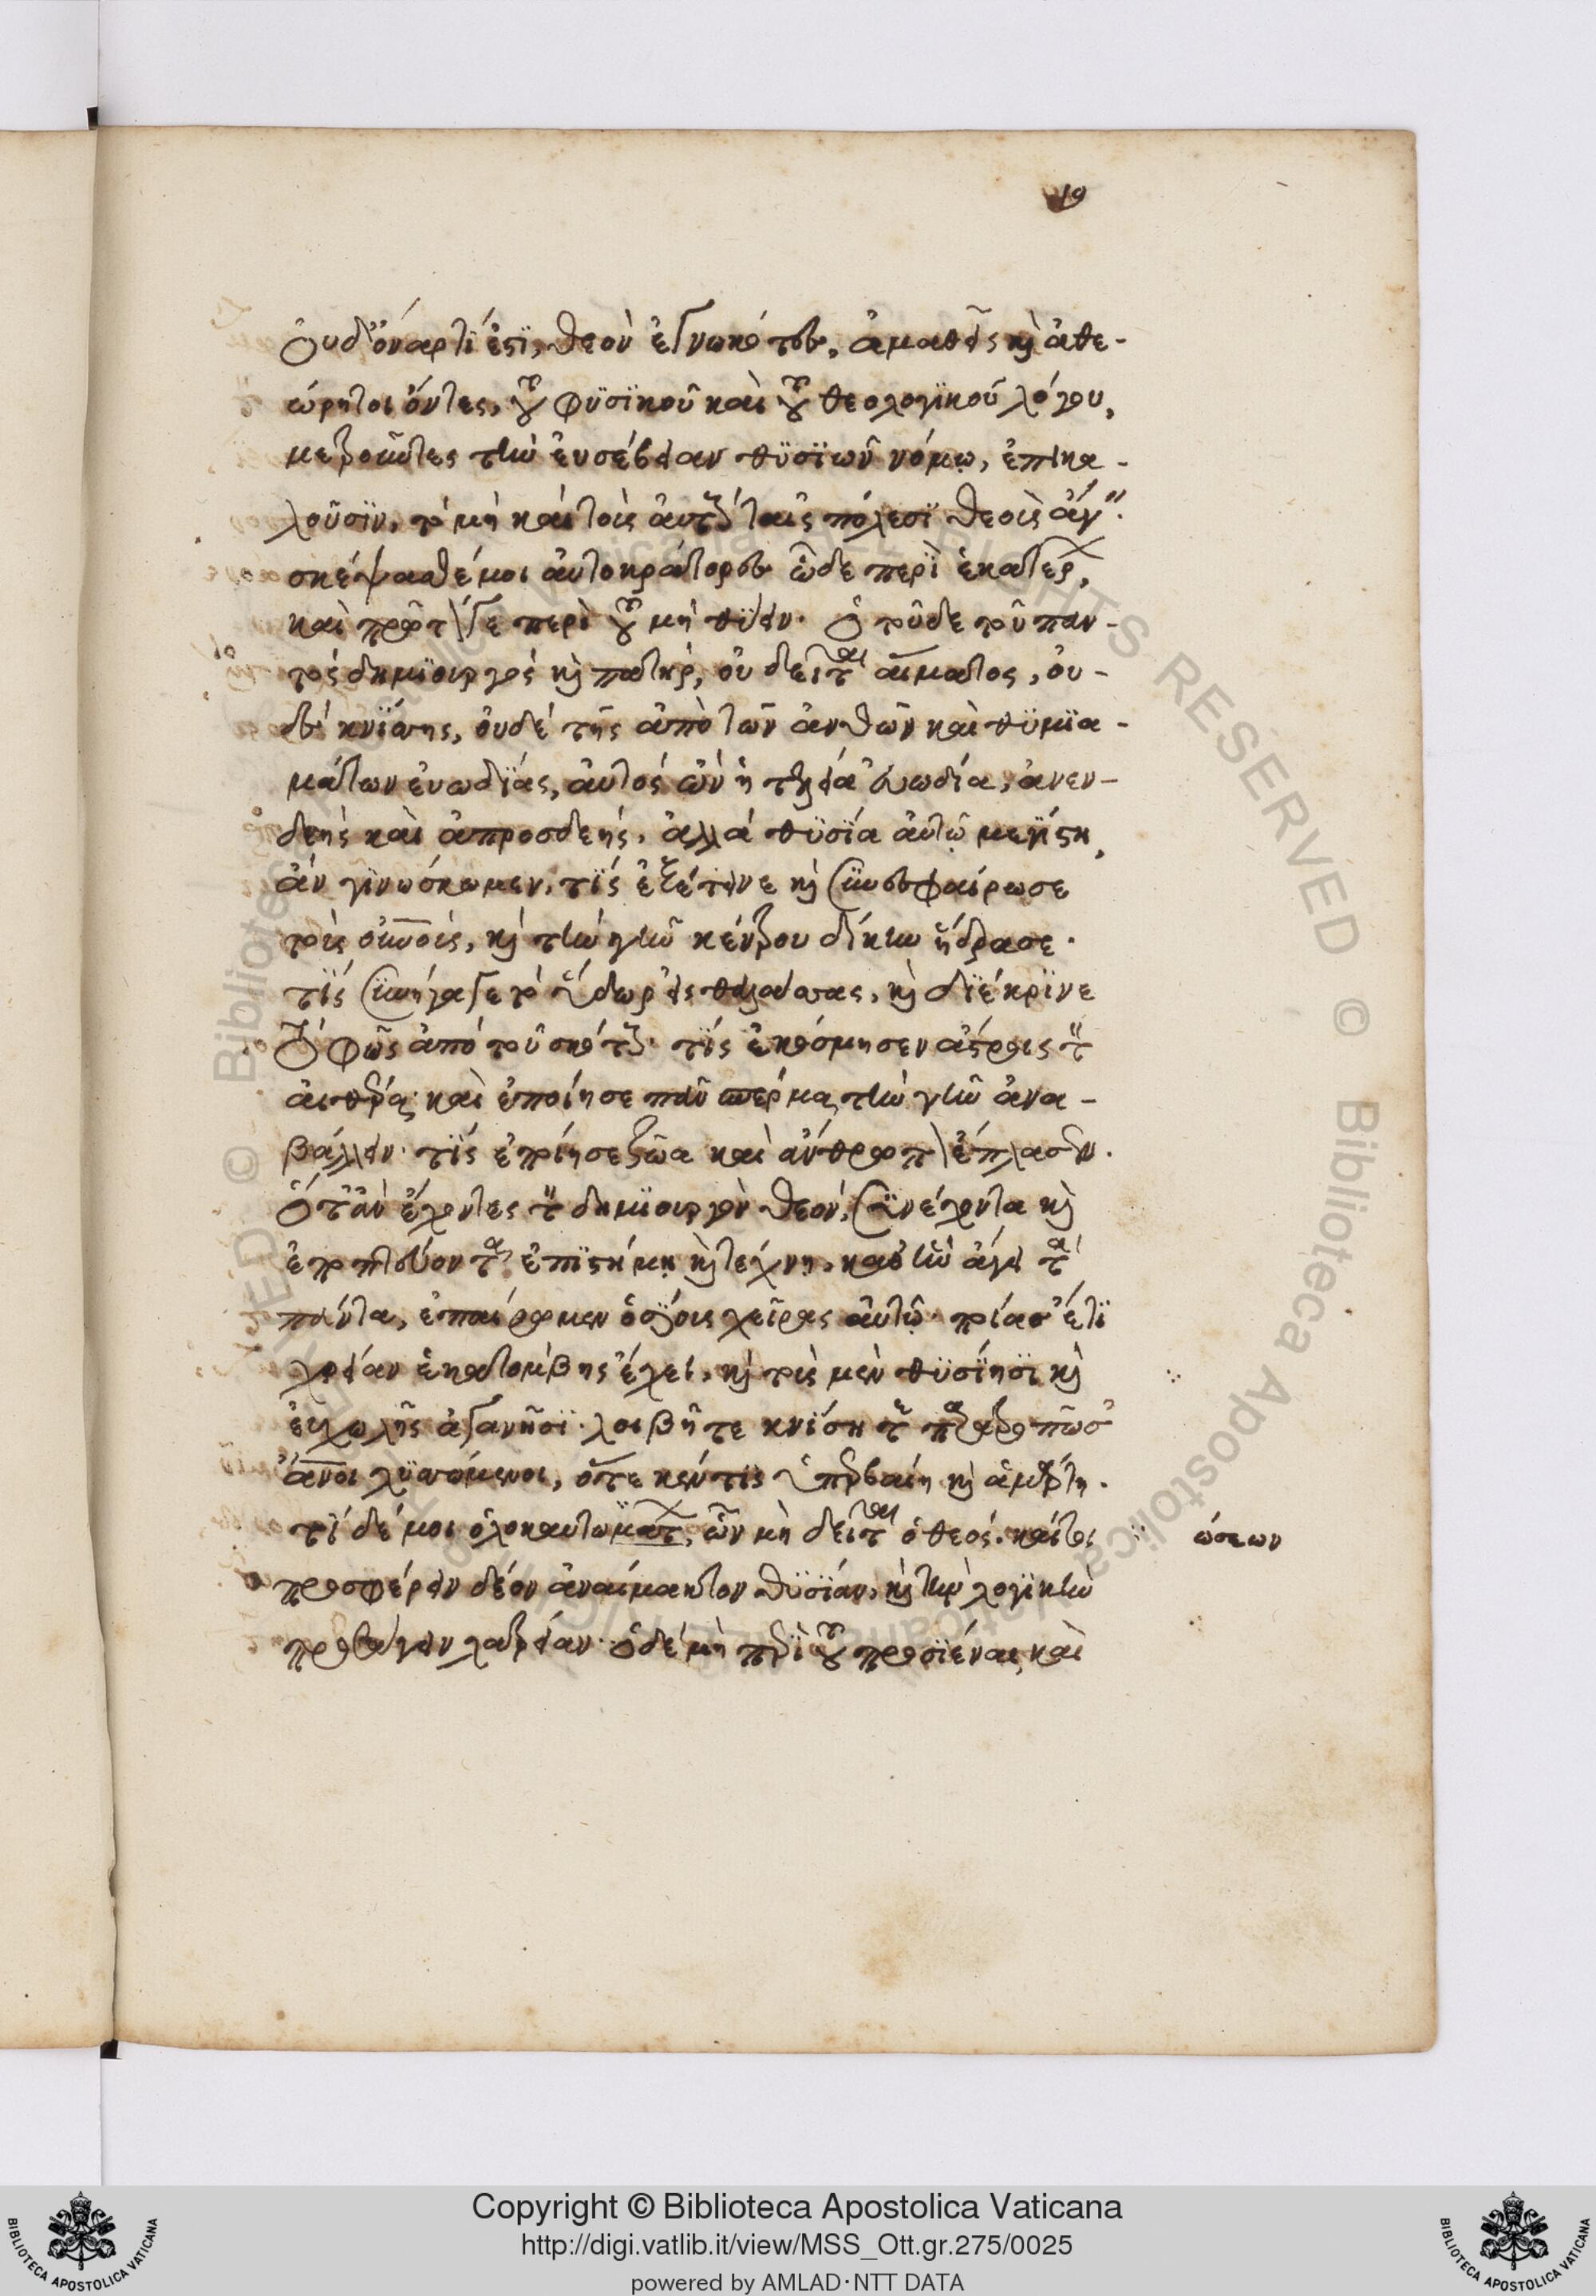 19
οὐδ' ὄναρ τί ἐστι, θεὸν ἐγνωκότες, ἀμαθεῖς καὶ ἀθε-
ώρητοι ὄντες, τοῦ φυσικοῦ καὶ τοῦ θεολογικοῦ λόγου,
μετροῦντες τὴν εὐσέβειαν θυσιῶν νόμῳ, ἐπικα-
λοῦσιν, τὸ μὴ καὶ τοῖς αὐτοῖς ταῖς πόλεσι θεοῖς ἄγειν.
σκέψασθέ μοι αὐτοκράτορες ὧδε περὶ ἑκατέρων,
καὶ πρῶτόν γε περὶ τοῦ μὴ θύειν. ὁ τοῦδε τοῦ παν-
τὸς δημιουργὸς καὶ πατὴρ, οὐ δεῖται αἵματος, οὐ-
δὲ κνίσσης, οὐδὲ τῆς ἀπὸ τῶν ἀνθῶν καὶ θυμια-
μάτων εὐωδίας, αὐτὸς ὢν ἡ τελεία εὐωδία, ἀνεν-
δεὴς καὶ ἀπροσδεής. ἀλλὰ θυσία αὐτῷ μεγίστη,
ἂν γινώσκωμεν, τίς ἐξέτεινε καὶ συνεσφαίρωσε
τοὺς οὐνοὺς, καὶ τὴν γῆν κέντρου δίκην ἥδρασε.
τίς συνήγαγε τὸ ὕδωρ εἰς θαλάσσας, καὶ διέκρινε
τὸ φῶς ἀπὸ τοῦ σκότους. τίς ἐκόσμησεν ἄστροις τὸν
αἰθέρα καὶ ἐποίησε πᾶν σπέρμα τὴν γῆν ἀνα-
βάλλειν. τίς ἐποίησε ζῶα καὶ ἄνθρωπον ἔπλασεν.
ὅτ' ἂν ἔχοντες τὸν δημιουργὸν θεὸν, συνέχοντα καὶ
ἐποπτεύοντα ἐπιστήμῃ καὶ τέχνῃ, καθ' ἣν ἄγει τὰ
πάντα, ἐπαίρωμεν ὁσίους χεῖρας αὐτῷ. ποίας ἔτι
χρείαν ἑκατόμβης ἔχει, καὶ τοὺς μὲν θυσίησι καὶ
εὐχωλῆς ἀγανῆσι. λοιβῇ τε κνίσῃ τε παρατρωπῶσ'
ἄνοι λισσόμενοι, ὅτε κέν τις ὑπερβαίη καὶ ἁμάρτῃ.
τί δέ μοι ὁλοκαυτωμάτων, ὧν μὴ δεῖται ὁ θεός. καίτοι
ώσεων
προσφέρειν δέον ἀναίμακτον θυσίαν, καὶ τὴν λογικὴν
προσάγειν λατρείαν. ὁ δὲ μὴ περὶ τοῦ προσιέναι, καὶ
Copyright © Biblioteca Apostolica Vaticana
http://digi.vatlib.it/view/MSS_Ott.gr.275/0025
powered by AMLAD·NTT DATA